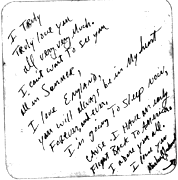 I Truly
Truly love you
all very very Much.
I can't wait to see you
all in Summer,
I love England,
you will always be in My heart
Forever, and ever.
I'm going to Sleep now,
cause I Have an early
Flight Back To America,
I adore you all.
I love you